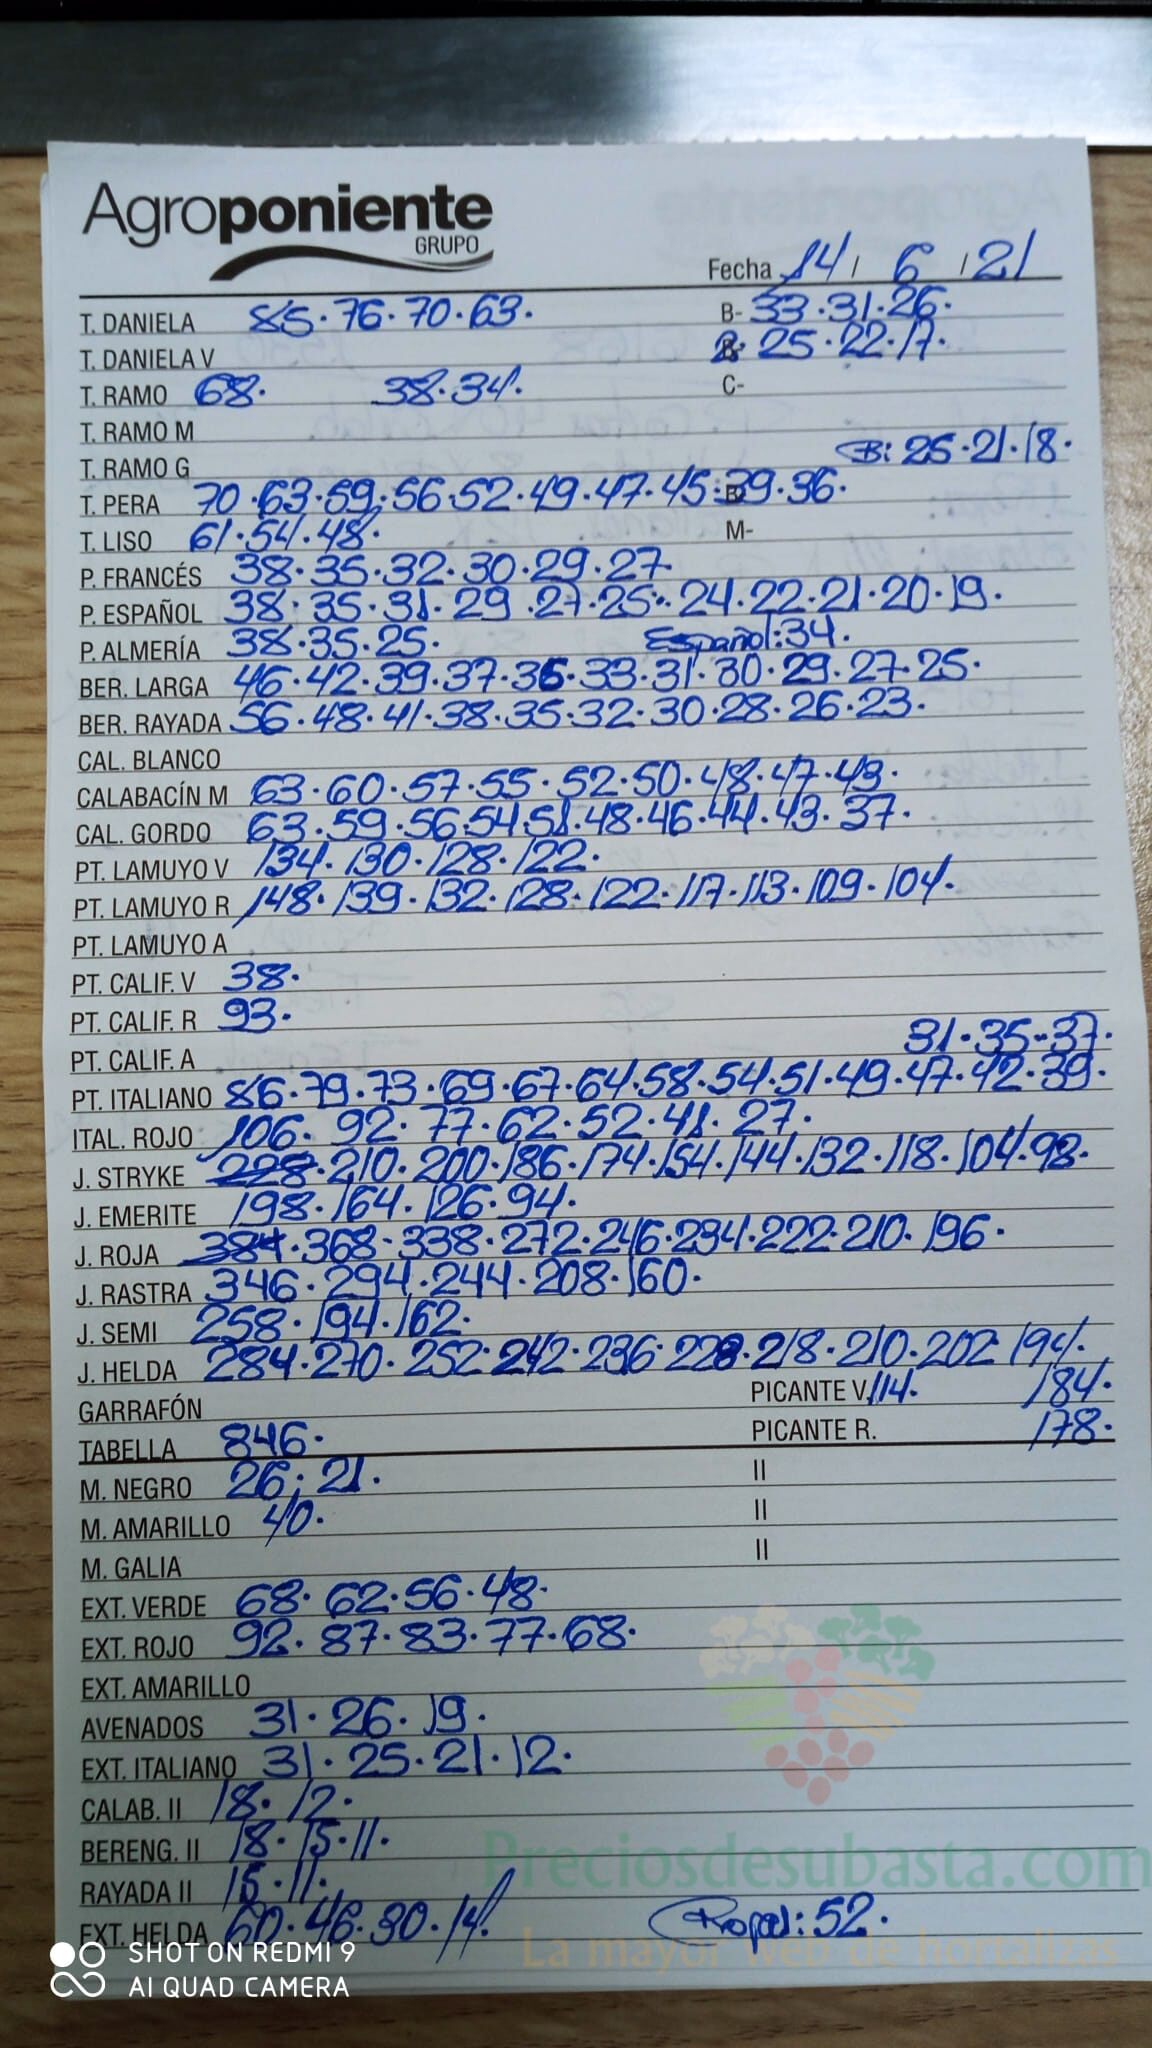 Agroponiente
GRUPO
Fecha 14 / 6 / 21
T. DANIELA 85.76.70.63. B- 33.31.26.
T. DANIELA V 25.22.17.
T. RAMO 68. 38.34. C-
T. RAMO M
T. RAMO G B: 25.21.18.
T. PERA 70.63.59.56.52.49.47.45.39.36.
T. LISO 61.54.48. M-
P. FRANCÉS 38.35.32.30.29.27.
P. ESPAÑOL 38.35.31.29.27.25.24.22.21.20.19.
P. ALMERÍA 38.35.25. Español:34.
BER. LARGA 46.42.39.37.35.33.31.30.29.27.25.
BER. RAYADA 56.48.41.38.35.32.30.28.26.23.
CAL. BLANCO
CALABACÍN M 63.60.57.55.52.50.48.47.43.
CAL. GORDO 63.59.56.54.51.48.46.44.43.37.
PT. LAMUYO V 134.130.128.122.
PT. LAMUYO R 148.139.132.128.122.117.113.109.104.
PT. LAMUYO A
PT. CALIF. V 38.
PT. CALIF. R 93.
PT. CALIF. A 31.35.37.
PT. ITALIANO 86.79.73.69.67.64.58.54.51.49.47.42.39.
ITAL. ROJO 106.92.77.62.52.41.27.
J. STRYKE 228.210.200.186.174.154.144.132.118.104.98.
J. EMERITE 198.164.126.94.
J. ROJA 384.368.338.272.246.234.222.210.196.
J. RASTRA 346.294.244.208.160.
J. SEMI 258.194.162.
J. HELDA 284.270.252.242.236.228.218.210.202.194.
GARRAFÓN PICANTE V. 114. 184.
TABELLA 846. PICANTE R. 178.
M. NEGRO 26.21. II
M. AMARILLO 40. II
M. GALIA II
EXT. VERDE 68.62.56.48.
EXT. ROJO 92.87.83.77.68.
EXT. AMARILLO
AVENADOS 31.26.19.
EXT. ITALIANO 31.25.21.12.
CALAB. II 18.12.
BERENG. II 18.15.11.
Preciosdesubasta.com
RAYADA II 15.11.
EXT. HELDA 60.46.30.14. :52.
La mayor web de hortalizas
SHOT ON REDMI 9
AI QUAD CAMERA